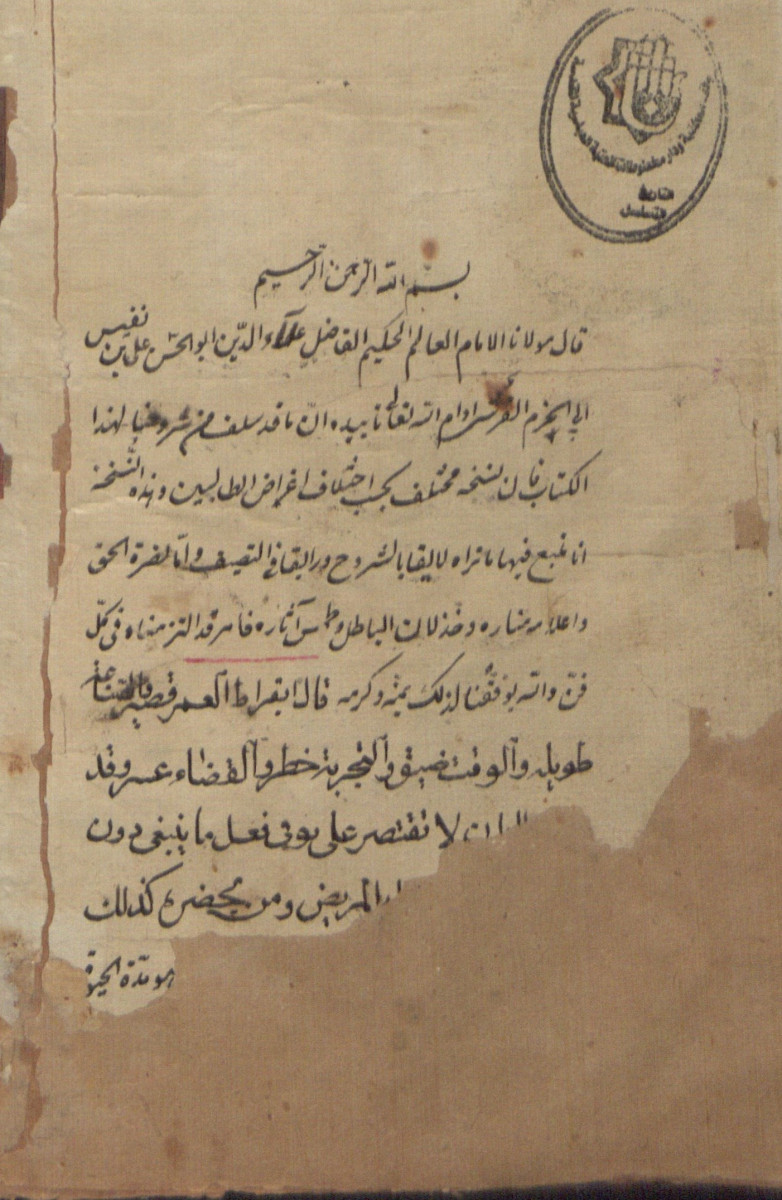 بسم الله الرحمن الرحيم
قال مولانا الامام العالم الحكيم الفاضل علاء والدين ابو الحسن على بن نفيس
ابى الحزم القرشى ادام الله تعالى تاييده ان ما قد سلف من شروحنا لهذا
الكتاب فان نسخه مختلف بحسب اختلاف اغراض الطالبين وهذه النسخة
انا نتبع فيها ما نراه لايقا بالشروح ورايقا فى التصيف واما نصرة الحق
واعلا مناره وخذلان الباطل وطمس آثاره فامر قد التزمناه فى كل
فن والله يوفقنا لذلك بمنه وكرمه قال ابقراط العمر قصير والصناعة
طويله والوقت ضيق والتجربة خطر والقضاء عسر وقد
لا تقتصر على توخى فعل ما ينبغى دون
المريض ومن يحضره كذلك
مدة الحيوة